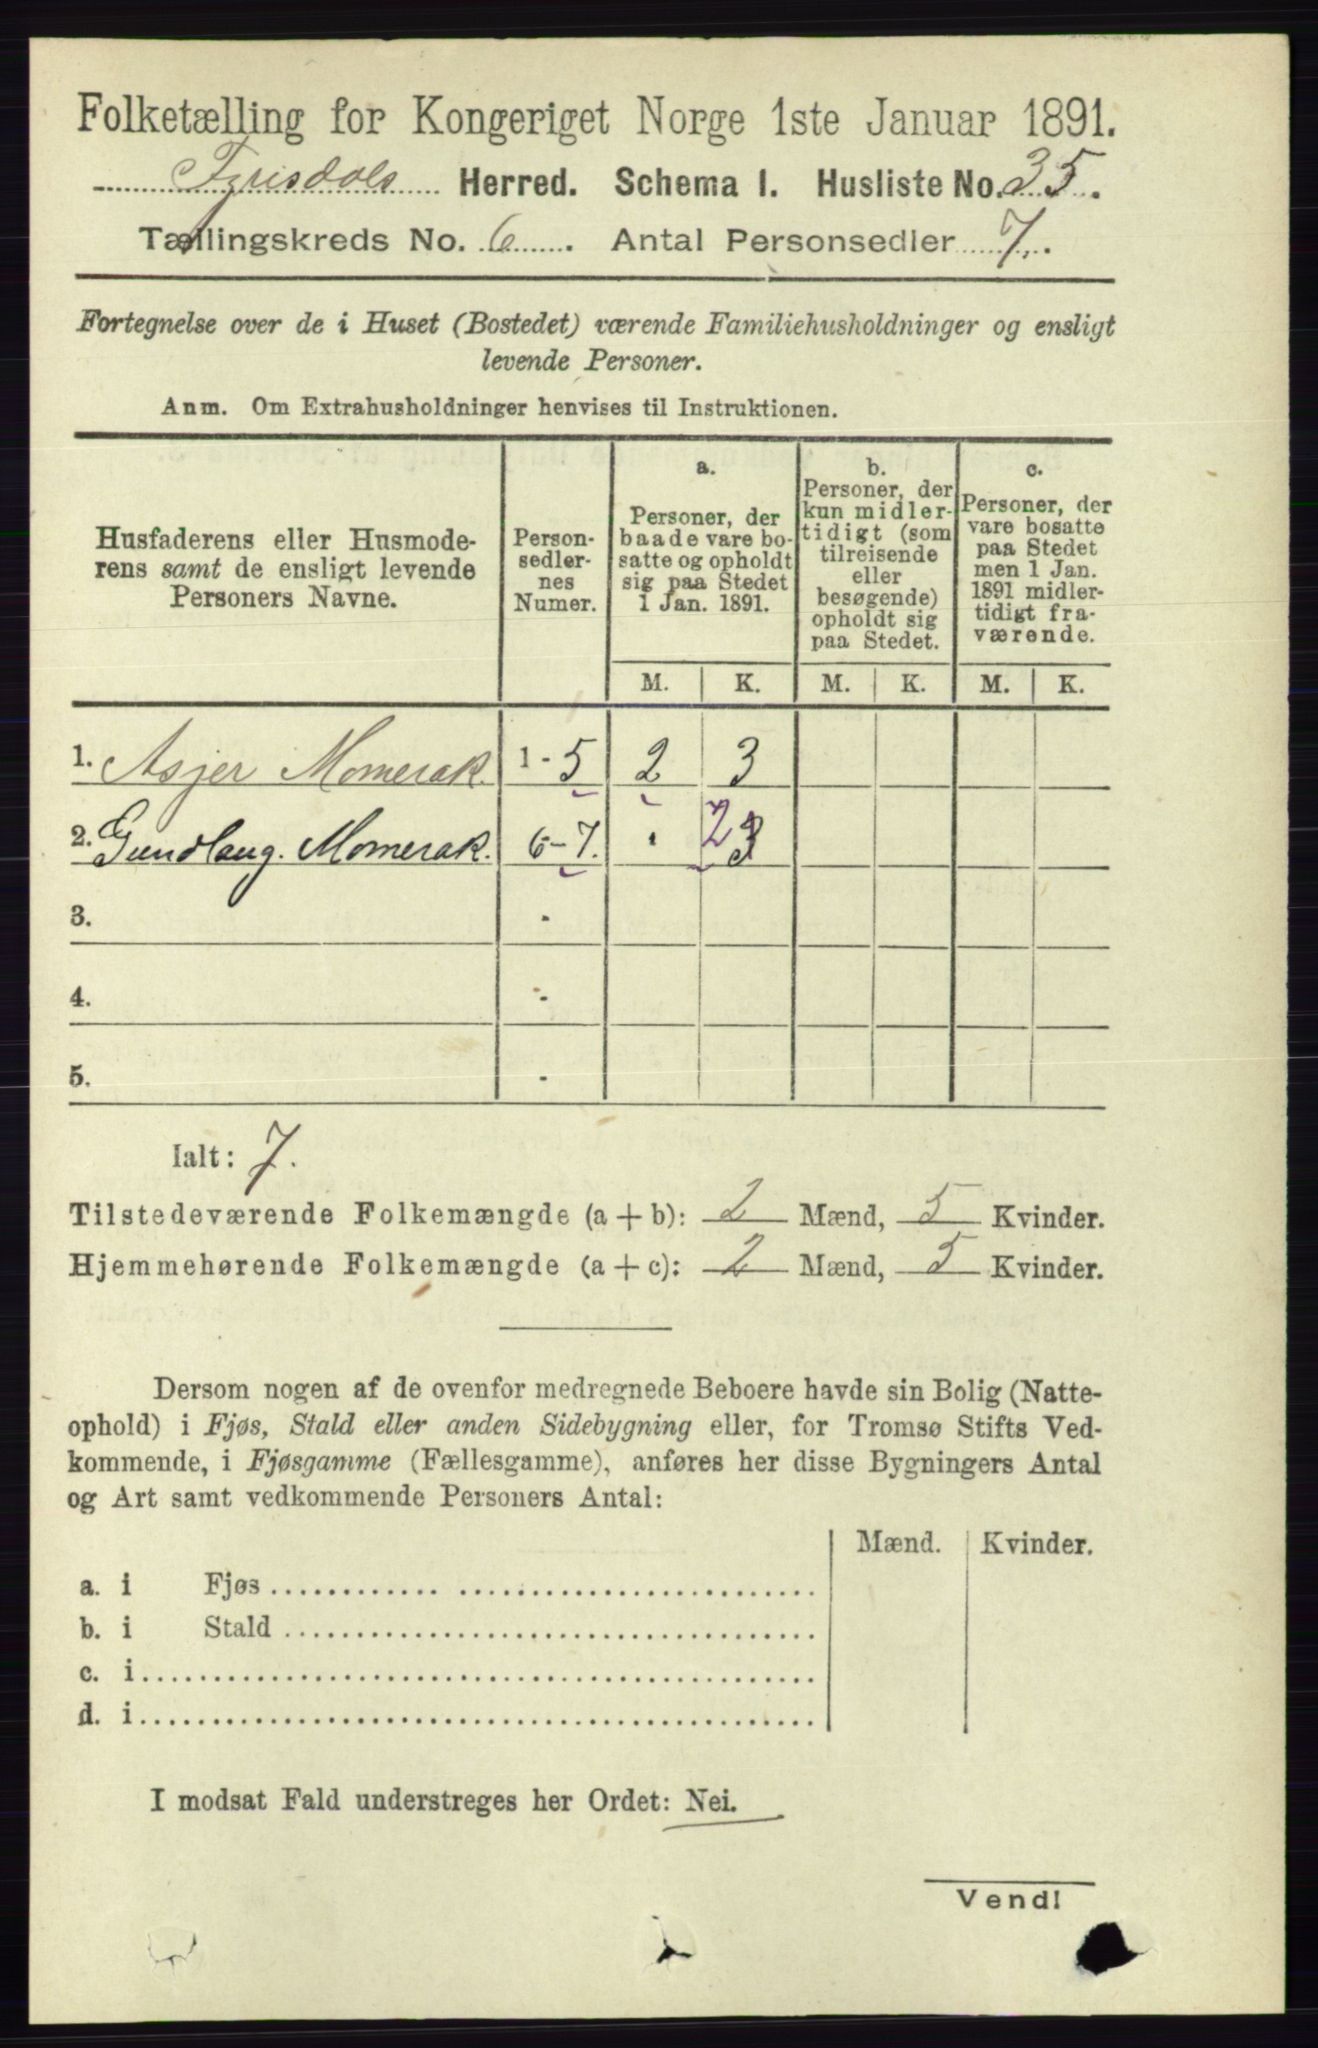 Folketælling for Kongeriget Norge 1ste Januar 1891.
Fyrisdals Herred. Schema I. Husliste No. 35.
Tællingskreds No. 6. Antal Personsedler 7.
Fortegnelse over de i Huset (Bostedet) værende Familiehusholdninger og ensligt
levende Personer.
Anm. Om Extrahusholdninger henvises til Instruktionen.
Husfaderens eller Husmode-
rens samt de ensligt levende
Personers Navne.
Person-
sedler-
nes
Numer.
a.
Personer, der
baade vare bo-
satte og opholdt
sig paa Stedet
1 Jan. 1891.
b.
Personer, der
kun midler-
tidigt (som
tilreisende
eller
besøgende)
opholdt sig
paa Stedet.
c.
Personer, der
vare bosatte
paa Stedet
men 1 Jan.
1891 midler-
tidigt fra-
værende.
M. K. M. K. M. K.
1. Asjer Momerak. 1 - 5 2 3
2. Gundlaug. Momerak. 6 - 7. 2 3
3. -
4. -
5. -
Ialt: 7.
Tilstedeværende Folkemængde (a + b): 2 Mænd, 5 Kvinder.
Hjemmehørende Folkemængde (a + c): 2 Mænd, 5 Kvinder.
Dersom nogen af de ovenfor medregnede Beboere havde sin Bolig (Natte-
ophold) i Fjøs, Stald eller anden Sidebygning eller, for Tromsø Stifts Ved-
kommende, i Fjøsgamme (Fællesgamme), anføres her disse Bygningers Antal
og Art samt vedkommende Personers Antal:
Mænd. Kvinder.
a. i Fjøs
b. i Stald
c. i
d. i
I modsat Fald understreges her Ordet: Nei.
Vend!